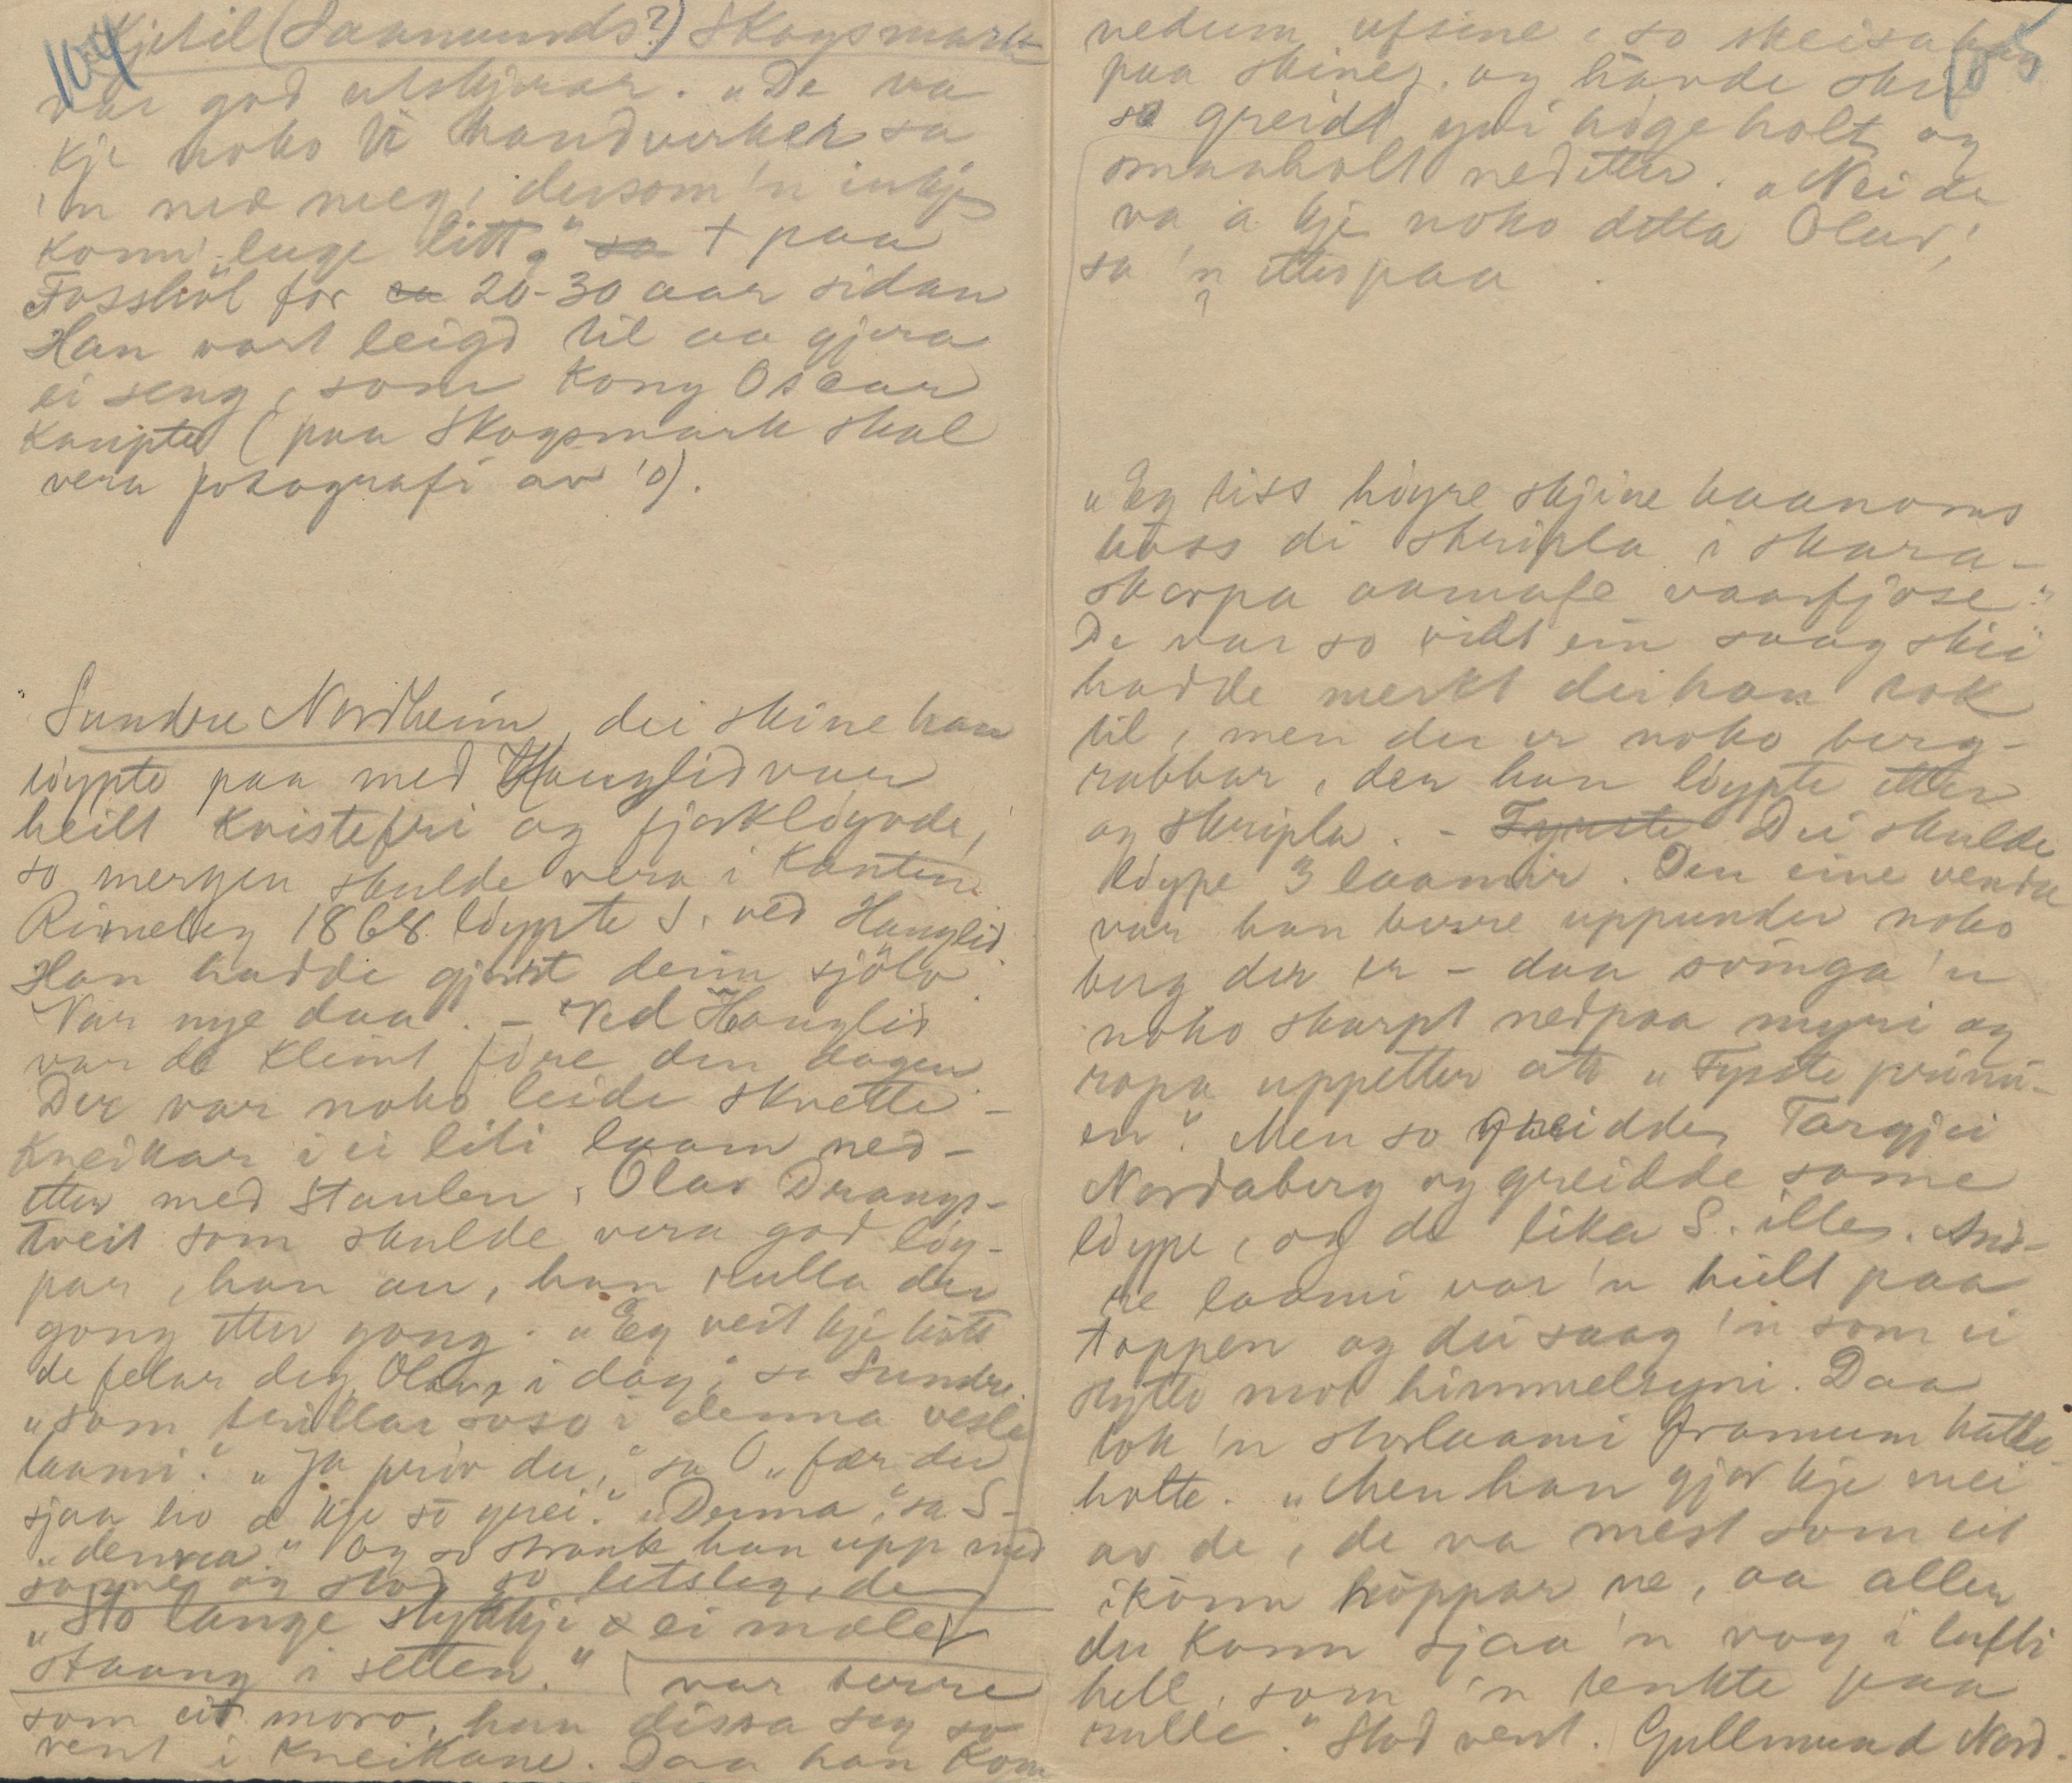 104
Kjetil (Saamunds?) Skogsmark
var god utskjerar. „De va
kje noko ti handverker sa
'n med meg, dersom 'n inkje
konn ljuge litt." sa + paa
Fossheil for ca 20-30 aar sidan
Han vart leigd til aa gjera
ei seng, som Kong Oscar
kaupte (paa Skogsmark skal
vera fotografi av 'o).
Sundre Nordheim, dei skine han
löypte paa med Hauglid var
heilt kvistefri og
so mergen skulde vera i kantene
1868 löypte S. ved Hauglid.
Han hadde gjort deim sjölv
Var nye daa. – Ved Hauglid
var de kleint före den dagen
Der var noko leide skvette-
kneikar i ei liti laam ned-
etter med staulen, Olav Drangs-
tveit som skulde vera god löy-
par, han au, han rulla der
gong etter gong. „Eg veit kje hött
de felar deg, Olav, i dag," sa Sundre.
„som trillar soso i denna vesle
laami." „Ja pröv du," sa O „fær du
sjaa ho æ kje so grei." „Denna," sa S-
„denna." Og so sprank han upp med
same og stod so letsleg, de
„Sto lange stykkji & ei mæler
staang i setten." var berre
som eit moro, han dissa seg so
vent i kneikane. Daa han kom
105
nedum ufsine, so skeisa han
paa skine, og havde ski
so greidt ymi högeholt og
smaaholt nedetter. „Nei de
va a kje noko detta Olav,"
sa 'n etterpaa
„Eg tiss höyre skjine haanoms
höss di skripla i skara-
skorpa aamafe vaarfjose"
De var so vidt ein saag skii
hadde merkt der han tok
til, men der er noko berg-
rabbar, der han löypte etter
og skripla. – Fyrste Dei skulde
löype 3 laamir. Den eine venda
var han berre uppunder noko
berg der er – daa svinga 'n
noko skarpt nedpaa myri og
ropa uppetter att „Fyrste primi-
en". Men so greidde Targjei
Nordaberg og greidde same
löype, og de lika S. ille. And-
re laami var 'n heilt paa
toppen og dei saag 'n som ei
skytte mot himmelsyni. Daa
tok 'n storlaami framum hatte-
holte. „Men han gjor kje mei
av de, de va mest som eit
ikönn höppar ne, aa aller
du konn sjaa 'n vog i lufti
hell, som 'n tenkte paa
rulle." Stod vent. Gullmund Nord-